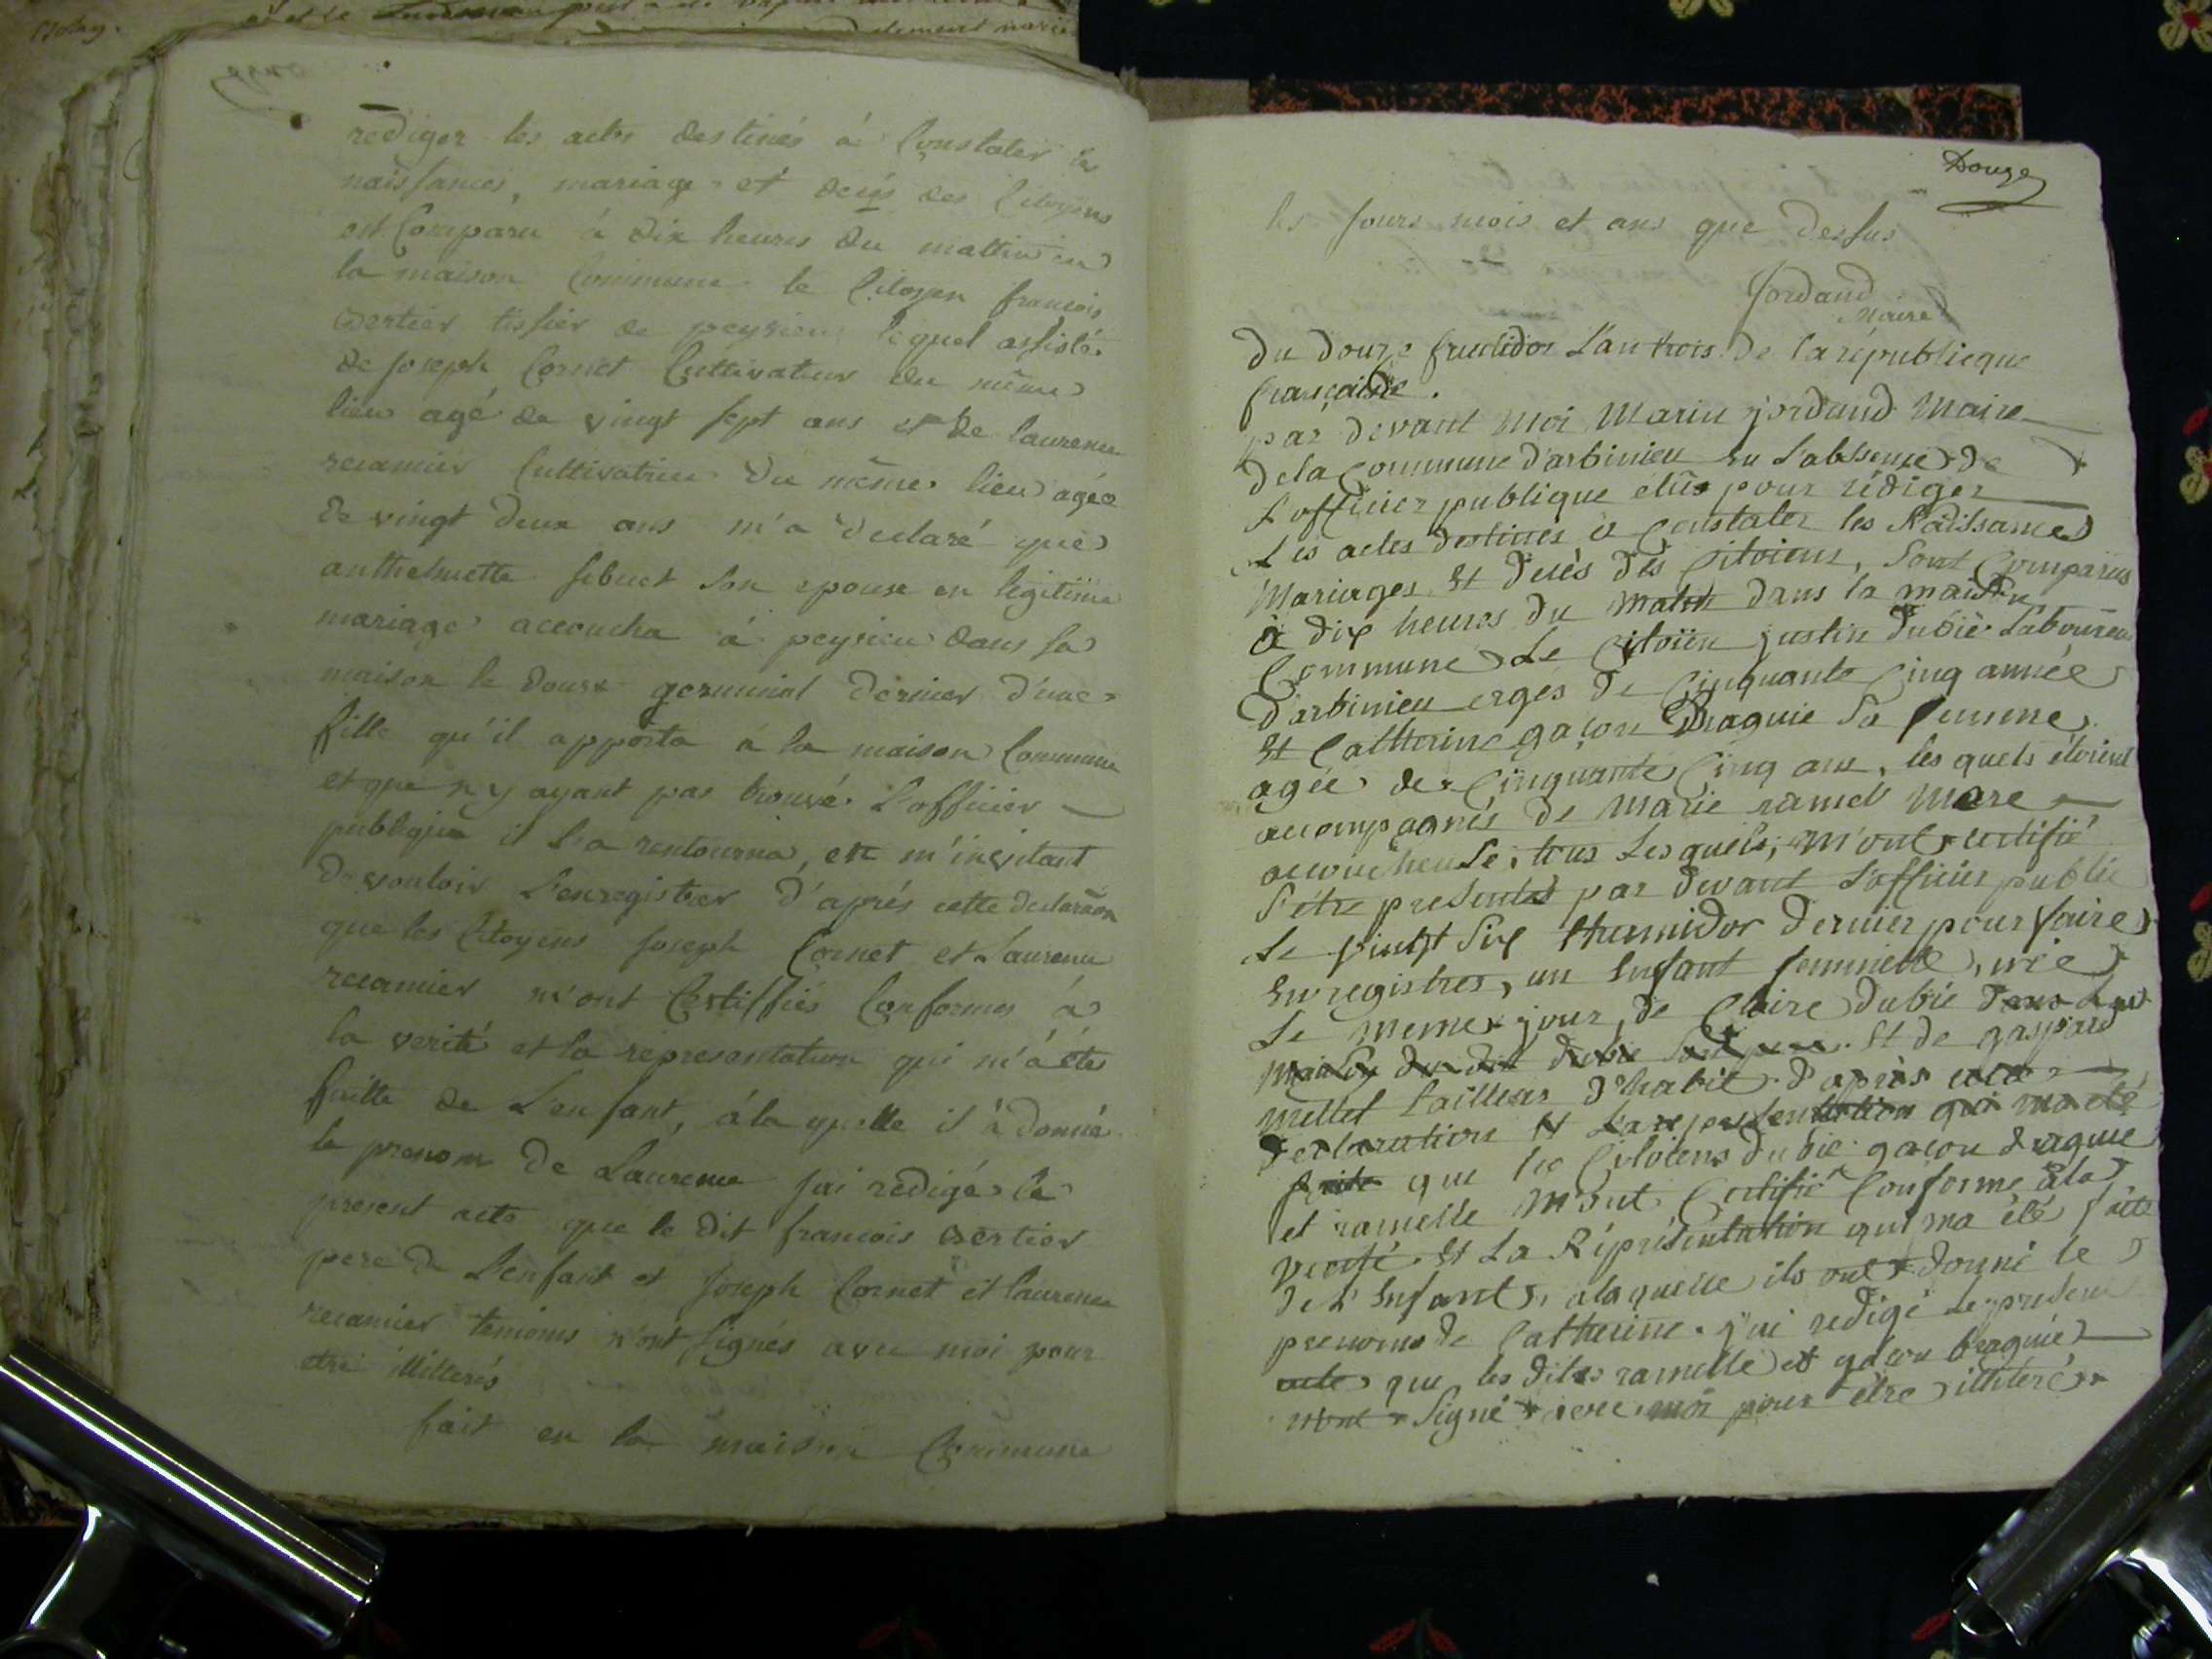 rediger les actes destinés á Constater les
naissances, mariage et decés des Citoyens
est Comparu á dix heures du mattin en
la maison Commune le Citoyen francois
tissier de peysieu lequel assisté
de Joseph Cornet Cultivateur du même
lieu agé de vingt sept ans et de laurence
recamier Cultivatrice du même lieu agée
de vingt deux ans m'a declaré que
anthelmette sibuet son epouse en legitime
mariage accoucha á peysieu dans sa
maison le douze germinal dernier d'une
fille qu'il apporta á la maison Commune
et que n'y ayant pas trouvé L'officier
publique il L'a rentourna, et m'invitant
de vouloir L'enregistrer d'aprés cette declaraõn
que les Citoyens Joseph Cornet et Laurence
recamier m'ont Certiffiés Conformes á
la verité et la representation qui m'á éte
faitte de L'enfant, á la quelle il á donné
le prenom de Laurence jai redigé le
present acte que le dit francois
pere de L'enfant et Joseph Cornet et laurence
recamier temoins n'ont signés avec moi pour
etre illitterés
fait en la maison Commune
Douze
les jours mois et ans que dessus
Jordand
Maire
du douze fructidor L'an trois de la républicque
française.
par devant moi Marin jordand Maire
de la Commune d'arbinieu en L'absence de
L'officier publique elûs pour rédiger
Les actes destinés à Constater les Naissances
Mariages Et decès des Citoiens, Sont Comparus
à dix heures du matin dans la maison
Commune Le Citoïen justin dubié Laboureur
d'arbinieu erges de Cinquante Cinq année
Et Catherine gaçon Draguie Sa femme
agée de Cinquante Cinq ans, les quels étoient
accompagnés de Marie ramel Mere
accoucheuse, tous Les quels, M'ont certifié
S'étre presentes par devant L'officier public
Le vintgt Six thermidor dernier pour faire
Enregistrer, un Enfant feminelle, née
Le meme jour, de Claire dubié dans La
maison du dit dubié Son pere. Et de gaspard
millet tailleur d'habit d'après cette
declaration Et La representation qui ma été
faite que les Citoiens dubié gacon draguie
et ramelle M'ont Certifié Conforme à la
verité Et La Réprésentation qui ma été faite
de L'Enfant, a laquelle ils ont donné le
prenoms de Catherine. j'ai redigé Le present
acte que les dites ramelle et gacon braguie
n'ont Signé avec moi pour étre illitéré